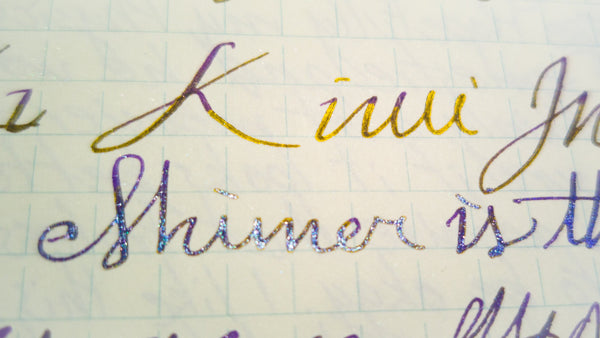 Kiwi In
Shimer is th